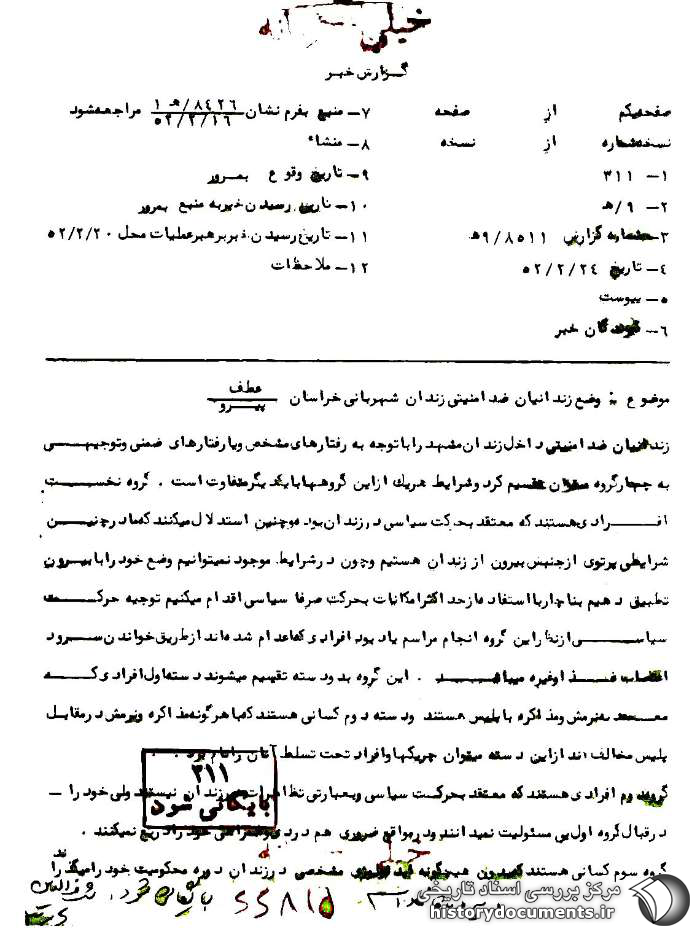 خیلی
گزارش خبر
صفحه‌یکم از صفحه
نسخه‌شماره از نسخه
۱ـ ۳۱۱
۲ـ ۹/ه‍
۳ـ شماره گزارش ۹/۸۵۱۱ه‍
۴ـ تاریخ ۵۲/۲/۲۴
۵ـ پیوست
۶ـ گیرندگان خبر
۷ـ منبع بفرم نشان ۸۴۲۶/ه‍ ۱ مراجعه‌شود
۵۲/۲/۱۶
۸ـ منشاء
۹ـ تاریخ وقوع بمرور
۱۰ـ تاریخ رسیدن خبر به منبع بمرور
۱۱ـ تاریخ رسیدن خبر برهبر عملیات محل ۵۲/۲/۲۰
۱۲ـ ملاحظات
موضوع : وضع زندانیان ضد امنیتی زندان شهربانی خراسان عطف
پیرو
زندانیان ضد امنیتی داخل زندان مشهد را با توجه به رفتارهای مشخص ویا رفتارهای ضمنی وتوجیهی
به چهارگروه میتوان تقسیم کرد وشرایط هریك ازاین گروهها بایکدیگر متفاوت است . گروه نخست
افرادی هستند که معتقد بحرکت سیاسی در زندان بوده وچنین استدلال میکنند که مادر چنین
شرایطی پرتوی ازجنبش بیرون از زندان هستیم وچون در شرایط موجود نمیتوانیم وضع خود را با بیرون
تطبیق دهیم بناچار با استفاده از حد اکثر امکانات بحرکت صرفا سیاسی اقدام میکنیم توجیه حرکت
سیاسی ازنظر این گروه انجام مراسم یاد بود افرادی که اعدام شده‌اند ازطریق خواندن سرود
اعتصاب غذا وغیره میباشد . این گروه بدو دسته تقسیم میشوند دسته اول افرادی که
معتقد بنرمش ومذاکره با پلیس هستند ودسته دوم کسانی هستند که با هرگونه مذاکره ونرمش در مقابل
پلیس مخالف اند ازاین دسته میتوان چریکها وافراد تحت تسلط آنان را نام برد .
گروه دوم افرادی هستند که معتقد بحرکت سیاسی وبعبارتی تظاهرات در زندان نیستند ولی خود را ـ
در قبال گروه اول بی مسئولیت نمیدانند ودر مواقع ضروری همدردی وهمراهی خود را دریغ نمیکنند .
گروه سوم کسانی هستند که بدون هیچگونه ایدئولوژی مشخصی در زندان دوره محکومیت خود را میگذرانند
۳۱۱
بایگانی شود
بایگانی گردد
۵۵۸۱۵
مرکز بررسی اسناد تاریخی
historydocuments.ir